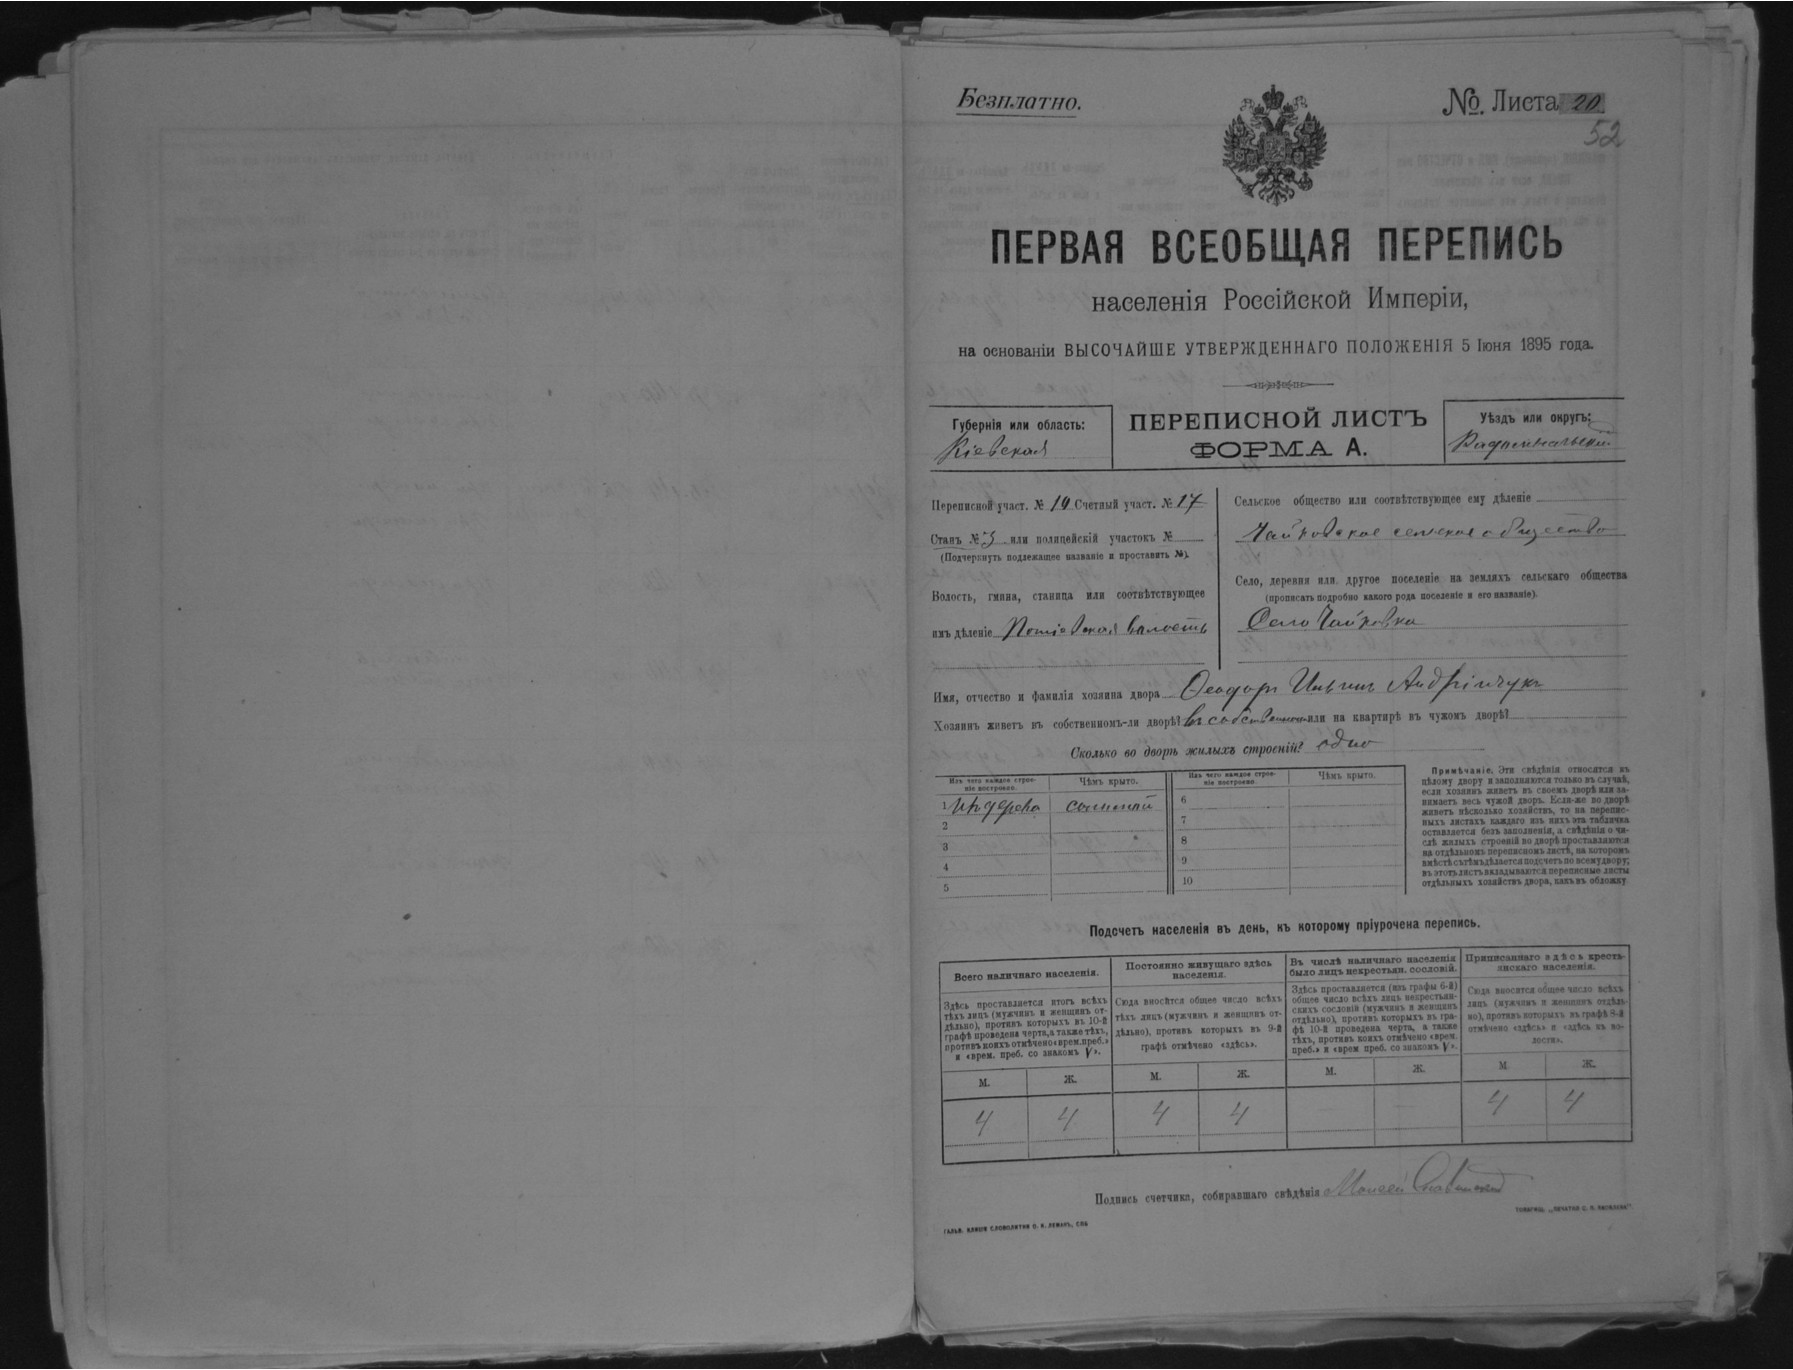 Безплатно.
№. Листа 20
52
ПЕРВАЯ ВСЕОБЩАЯ ПЕРЕПИСЬ
населенія Россійской Имперіи,
на основаніи ВЫСОЧАЙШЕ УТВЕРЖДЕННАГО ПОЛОЖЕНІЯ 5 Іюня 1895 года.
Губернія или область:
Кіевская
ПЕРЕПИСНОЙ ЛИСТЪ
ФОРМА А.
Уѣздъ или округъ:
Радомысльскій
Переписной участ. № 14 Счетный участ. № 17
Станъ № 3 или полицейскій участокъ №
(Подчеркнуть подлежащее названіе и проставить №).
Волость, гмина, станица или соотвѣтствующее
имъ дѣленіе Потіевская волость
Сельское общество или соотвѣтствующее ему дѣленіе
Чайковское сельское общество
Село, деревня или другое поселеніе на земляхъ сельскаго общества
(прописать подробно какого рода поселеніе и его названіе).
Село Чайковка
Имя, отчество и фамилія хозяина двора Ѳеодоръ Ильинъ Андрійчукъ
Хозяинъ живетъ въ собственномъ-ли дворѣ? въ собственномъ или на квартирѣ въ чужомъ дворѣ?
Сколько во дворѣ жилыхъ строеній? одно
Изъ чего каждое строе-
ніе построено.
Чѣмъ крыто.
1 Изъ дерева соломой
2
3
4
5
Изъ чего каждое строе-
ніе построено.
Чѣмъ крыто.
6
7
8
9
10
Примѣчаніе. Эти свѣдѣнія относятся къ
цѣлому двору и заполняются только въ случаѣ,
если хозяинъ живетъ въ своемъ дворѣ или за-
нимаетъ весь чужой дворъ. Если-же во дворѣ
живетъ нѣсколько хозяйствъ, то на перепис-
ныхъ листахъ каждаго изъ нихъ эта табличка
оставляется безъ заполненія, а свѣдѣнія о чи-
слѣ жилыхъ строеній во дворѣ проставляются
на отдѣльномъ переписномъ листѣ, на которомъ
вмѣстѣ съ тѣмъ дѣлается подсчетъ по всему двору;
въ этотъ листъ вкладываются переписные листы
отдѣльныхъ хозяйствъ двора, какъ въ обложку.
Подсчетъ населенія въ день, къ которому пріурочена перепись.
Всего наличнаго населенія.
Здѣсь проставляется итогъ всѣхъ
тѣхъ лицъ (мужчинъ и женщинъ от-
дѣльно), противъ которыхъ въ 10-й
графѣ проведена черта, а также тѣхъ,
противъ коихъ отмѣчено «врем. преб.»
и «врем. преб. со знакомъ V».
М. Ж.
4 4
Постоянно живущаго здѣсь
населенія.
Сюда вносится общее число всѣхъ
тѣхъ лицъ (мужчинъ и женщинъ от-
дѣльно), противъ которыхъ въ 9-й
графѣ отмѣчено «здѣсь».
М. Ж.
4 4
Въ числѣ наличнаго населенія
было лицъ некрестьян. сословій.
Здѣсь проставляется (изъ графы 6-й)
общее число всѣхъ лицъ некрестьян-
скихъ сословій (мужчинъ и женщинъ
отдѣльно), противъ которыхъ въ гра-
фѣ 10-й проведена черта, а также
тѣхъ, противъ коихъ отмѣчено «врем.
преб.» и «врем преб. со знакомъ V».
М. Ж.
Приписаннаго здѣсь кресть-
янскаго населенія.
Сюда вносится общее число всѣхъ
лицъ (мужчинъ и женщинъ отдѣль-
но), противъ которыхъ въ графѣ 8-й
отмѣчено «здѣсь» и «здѣсь въ во-
лости».
М. Ж.
4 4
Подпись счетчика, собиравшаго свѣдѣнія Моисей
ГАЛЬВ. КЛИШЕ СЛОВОЛИТНИ О. И. ЛЕМАНЪ, СПБ
ТОВАРИЩ. „ПЕЧАТНЯ С. П. ЯКОВЛЕВА“